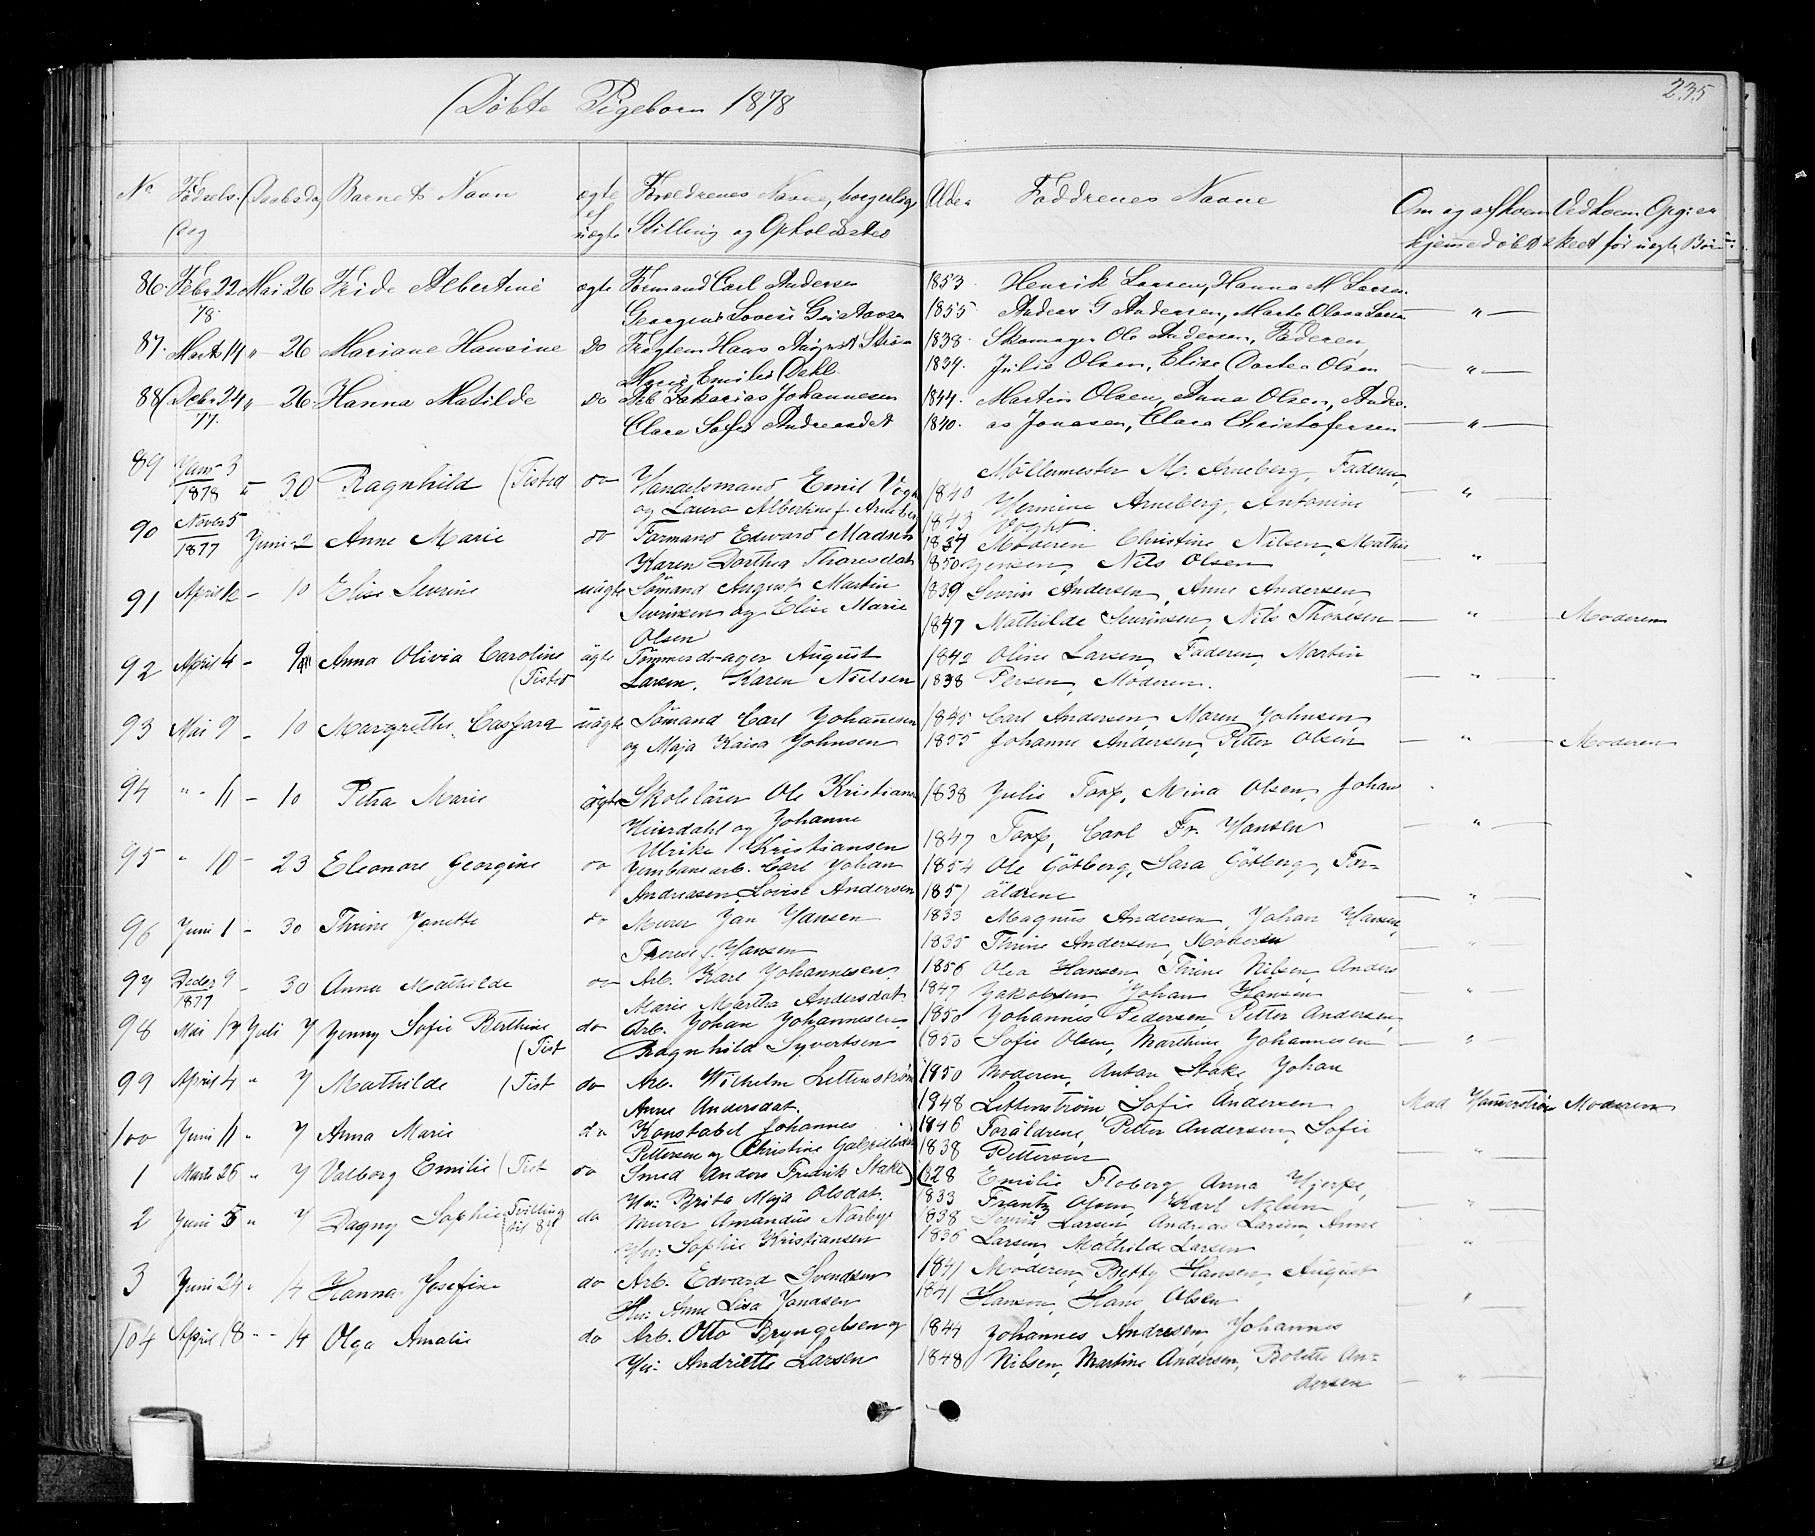 Døbte Pigebørn 1878
235
No Fødsels- Daabsdag Barnets Navn ægte Forældrenes Navne, borgerlig Alder Faddrenes Navne Om og af hvem Ved hvem Opg: er
Dag uægte Stilling og Opholdssted hjemmedøbt skeet for uægte Børn
86. Febr 22 Mai 26 Fride Albertine ægte Formand Carl Andersen 1853. Henrik Larsen, Hanna M Larsen
78. Lovise Gustavsen 1855. Anders G Andersen, Marte Larsen — " —
87. Marts 14 " 26 Mariane Hansine Do Hans 1838. Skomager Ole Andersen, Faderen,
Marie Emilie Dahl 1834. Julie Olsen, Elise Dortea Olsen — " —
88 Debr 24 " 26. Hanna Matilde Do Arb Sakarias Johannesen 1844. Martin Olsen, Anna Olsen, Andre-
77. Clara Sofie Andreasdet 1840. as Jonasen, Clara Christofersen — " —
89 Janr 3 Møllermester M. Arneberg, Faderen,
1878 " 30 Ragnhild (Tisted do Handelsmand Emil Vogt 1840 Hermine Arneberg, Antonine
og Laura Albertine f. Arneberg 1843 Voght. — " —
90 Novbr 5
1877 Juni 2 Anne Marie do Formand Edward Madsen 1834 Moderen Christine Nilsen, Mathis
Karen Dorthea Thoresdat 1850 Jensen, Nils Olsen — " —
91 April 12 - 10 Elise Severine uægte Sømand August Martin 1839 Severin Andersen, Anne Andersen,
Severinsen og Elise Marie 1847 Mathilde Severinsen, Nils Thoresen — " — Moderen
Olsen
92 April 4 - 9 Anna Olivia Caroline ägte Tømmerdrager August 1842 Oline Larsen, Faderen, Martin
(Tisted Larsen. Karen Nielsen 1838 Persen, Moderen. — " —
93 Mai 9 - 10 Margrethe Casfara uägte Sømand Carl Johannesen 1845 Carl Andersen, Maren Johnsen,
og Maja Kaisa Johnsen 1855 Johanne Andersen, Petter Olsen — " — Moderen
94 " - 11 - 10 Petra Marie ägte Skolelärer Ole Kristian 1838 Julie Torp, Mina Olsen, Johan
og Johanne 1847 Torp, Carl Fr. Hansen — " —
Ulrike Kristiansen
95 " 10 - 23 Eleonore Georgine do Jernbanearb. Carl Johan 1854 Ole Götberg, Sara Götberg, For-
Andreasen, Lovise Andersen 1851 äldrene — " —
96 Juni 1 - 30 Thrine Janette do Murer Jan Hansen 1833 Magnus Andersen, Johan Hansen,
Therese f. Hansen 1835 Thrine Andersen, Moderen — " —
97 Decbr 9 - 30 Anna Mathilde do Arb. Karl Johannesen 1856 Olea Hansen, Thrine Nilsen, Anders
1877 Marie Martha Andersdat. 1847 Jakobsen, Johan Hansen — " —
98 Mai 17 Juli 7 Jenny Sofie Berthine do Arb. Johan Johannesen. 1850 Johannes Pedersen, Petter Andersen,
(Tist Ragnhild Syvertsen 1853 Sofie Olsen, Marthine Johannesen — " —
99 April 4 " 7 Mathilde (Tist do Arb. Wilhelm Littenstrøm 1850 Moderen, Anton Stake, Johan
Anne Andersdat. 1848 Littenstrøm, Sofie Andersen Mad Moderen
100 Juni 11 " 7 Anna Marie do Konstabel Johannes 1846 Foräldrene, Petter Andersen, Sofie
Pettersen og Christine 1838 Pettersen — " —
1 Marts 26 " 7 Valborg Emilie (Tist do Smed Anders Fredrik Stake 1828 Emilie Floberg, Anna Hjerpe,
Hu: Brita Maja Olsdat. 1833 Frantz Olsen, Karl Nilsen — " —
2 Juni 5 " 7 Dagny Sophie Tvilling til 84 do Murer Amandus Norbye 1838 Sevrin Larsen, Andreas Larsen, Anne
Hu: Sophie Kristiansen 1835 Larsen, Mathilde Larsen "
3 Juni 24 " 14 Hanna Josefine do Arb. Edvard Svendsen 1841 Moderen, Betty Hansen, August
Hu: Anne Lisa Jonasen 1841 Hansen, Hans Olsen "
104 April 18 - - 14 Olga Amalie do Arb. Otto Bryngelsen og 1844 Johannes Andresen, Johannes
Hu: Andriette Larsen 1848 Nilsen, Martine Andersen, Bolette An-
dersen — " —